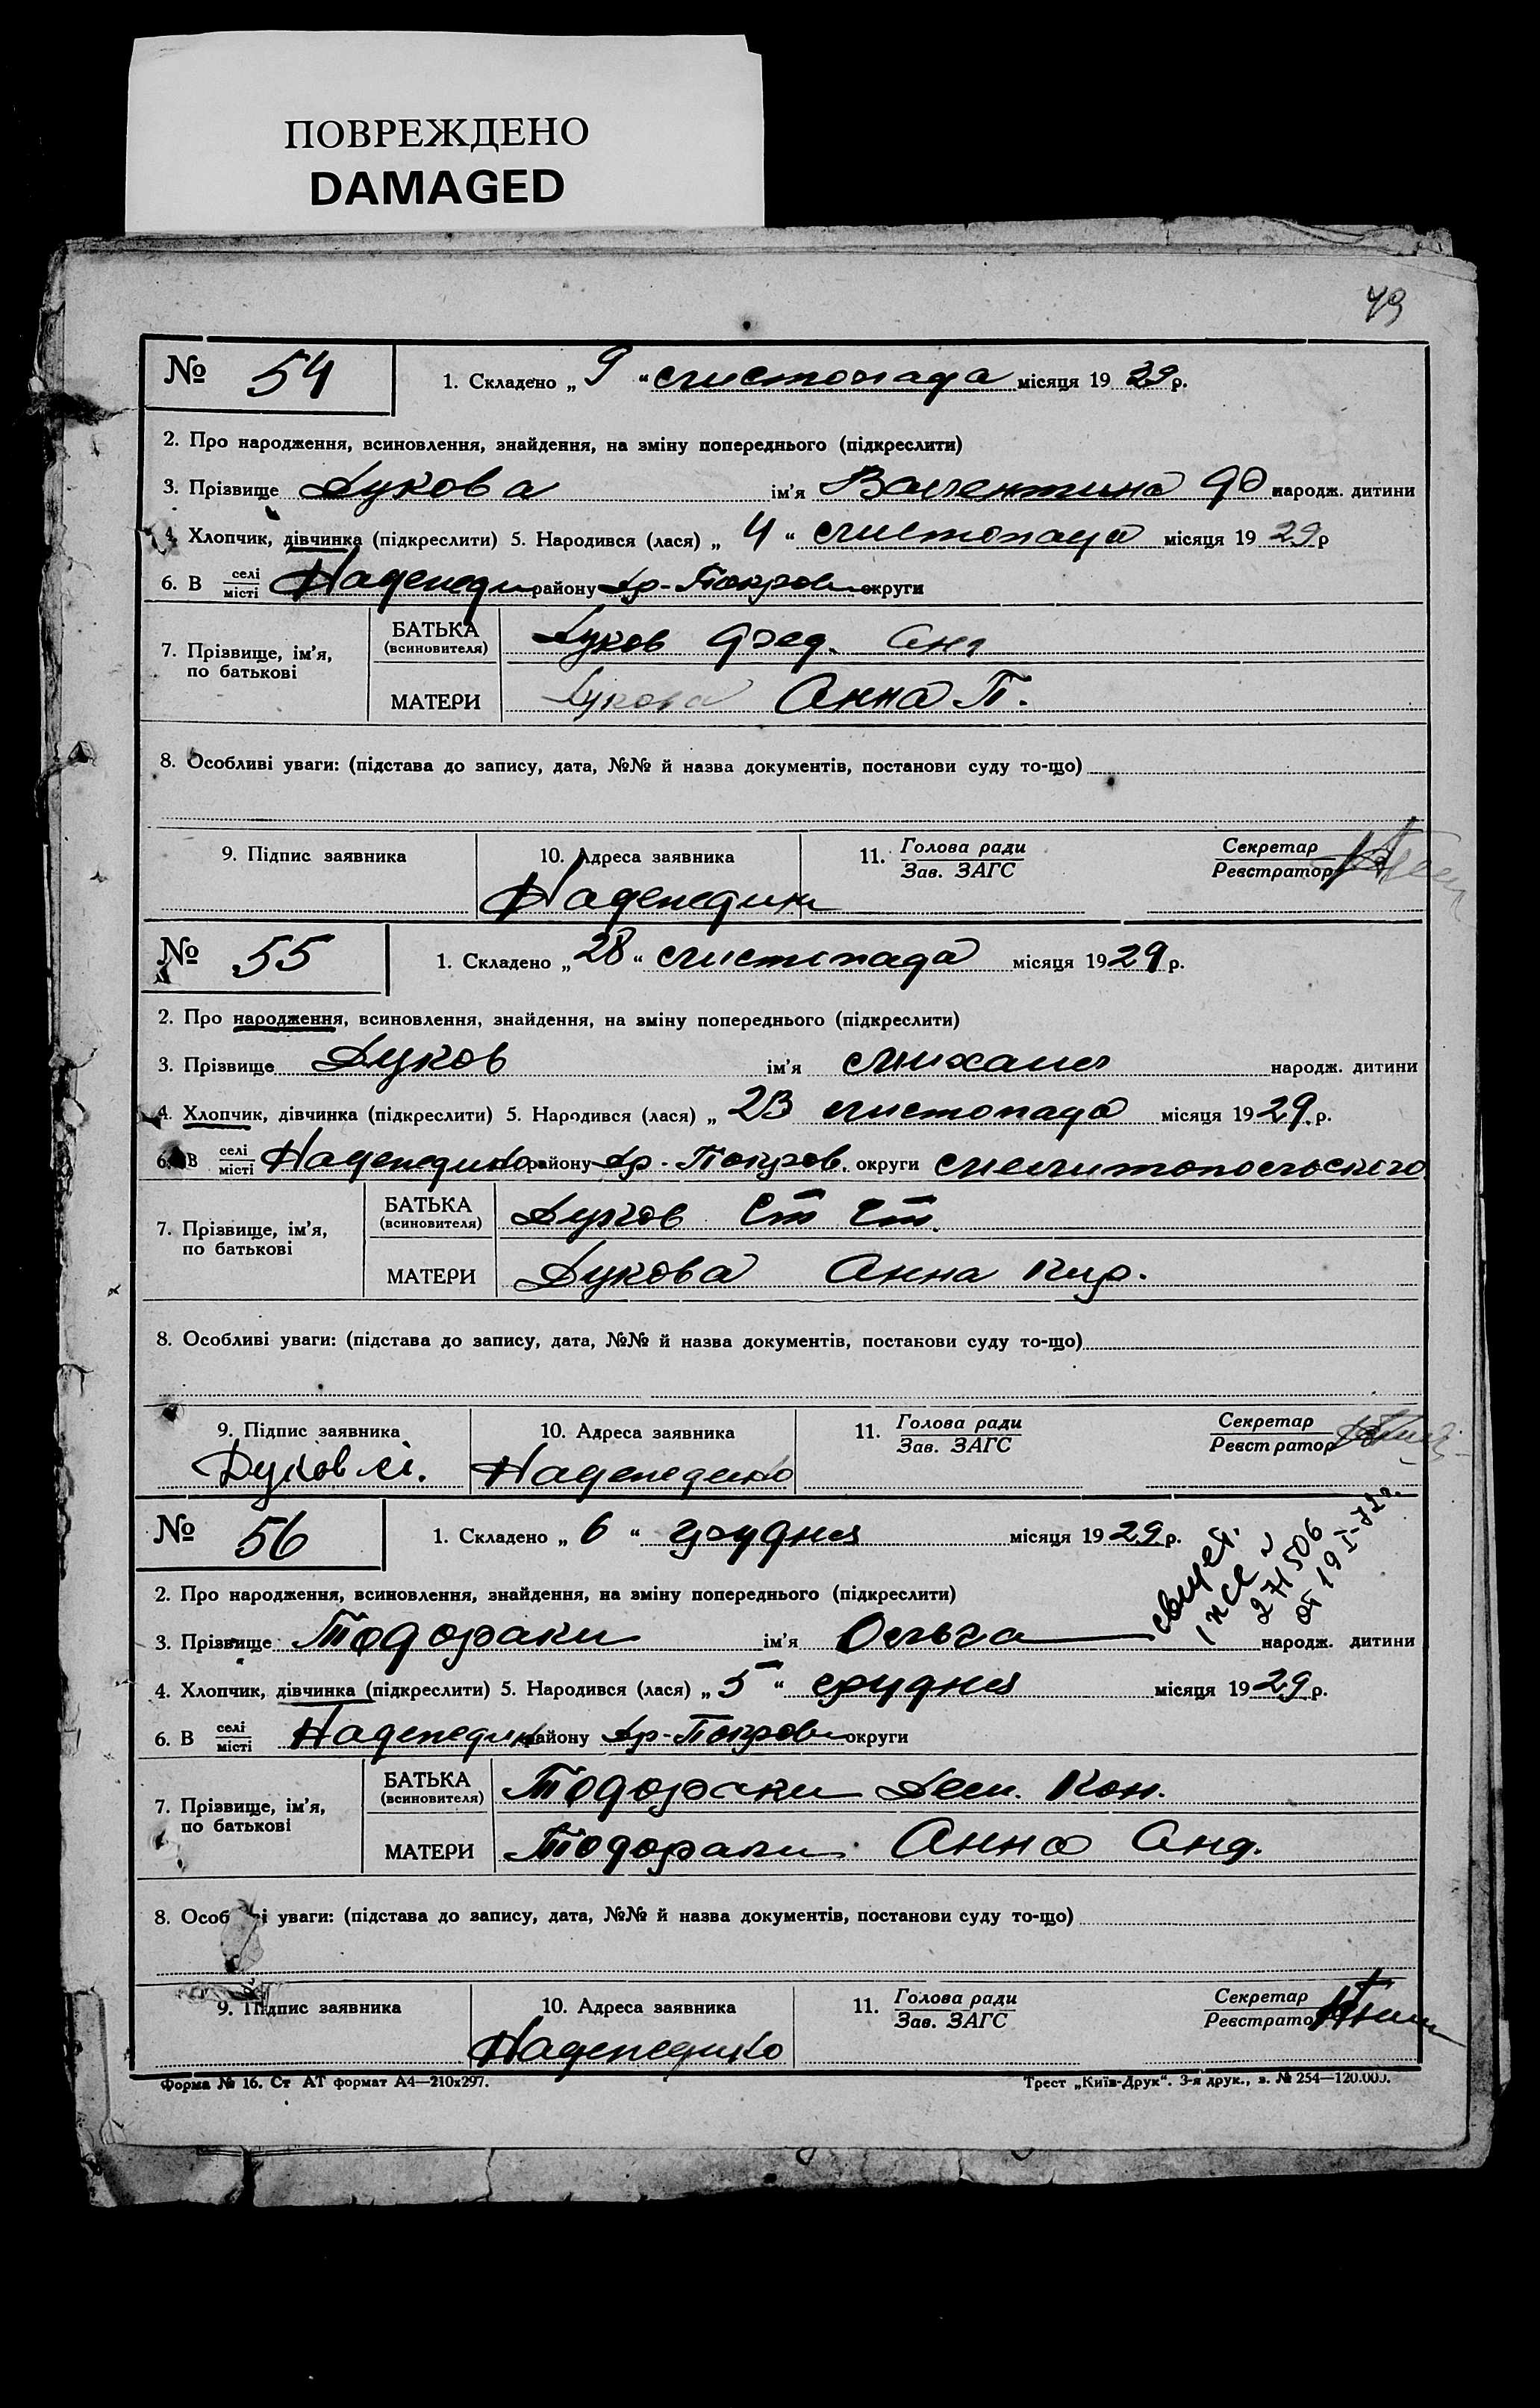 ПОВРЕЖДЕНО
DAMAGED
49
№ 54 1. Складено „ 9 “ листопада місяця 19 29 р.
2. Про народження, всиновлення, знайдення, на зміну попереднього (підкреслити)
3. Прізвище Дукова ім’я Валентина Фд народж. дитини
4. Хлопчик, дівчинка (підкреслити) 5. Народився (лася) „ 4 “ листопада місяця 19 29 р
6. В селі/місті району Др-Покров округи
7. Прізвище, ім’я, по батькові
БАТЬКА (всиновителя) Дуков Фед.
МАТЕРИ Дукова Анна П.
8. Особливі уваги: (підстава до запису, дата, №№ й назва документів, постанови суду то-що)
9. Підпис заявника 10. Адреса заявника 11. Голова ради/Зав. ЗАГС Секретар/Реєстратор
№ 55 1. Складено „ 28 “ листопада місяця 19 29 р.
2. Про народження, всиновлення, знайдення, на зміну попереднього (підкреслити)
3. Прізвище Дуков ім’я Михаил народж. дитини
4. Хлопчик, дівчинка (підкреслити) 5. Народився (лася) „ 23 листопада місяця 19 29 р.
6. В селі/місті району Др-Покров. округи Мелитопольского
7. Прізвище, ім’я, по батькові
БАТЬКА (всиновителя) Дуков Ст Ст.
МАТЕРИ Дукова Анна Кир.
8. Особливі уваги: (підстава до запису, дата, №№ й назва документів, постанови суду то-що)
9. Підпис заявника 10. Адреса заявника 11. Голова ради/Зав. ЗАГС Секретар/Реєстратор
Дуков
№ 56 1. Складено „ 6 “ грудня місяця 19 29 р.
271506
от 19 I-72г.
2. Про народження, всиновлення, знайдення, на зміну попереднього (підкреслити)
3. Прізвище Тодораки ім’я Ольга народж. дитини
4. Хлопчик, дівчинка (підкреслити) 5. Народився (лася) „ 5 “ грудня місяця 19 29 р.
6. В селі/місті району Др-Покров округи
7. Прізвище, ім’я, по батькові
БАТЬКА (всиновителя) Тодораки Дем. Кон.
МАТЕРИ Тодораки Анна Анд.
8. Особливі уваги: (підстава до запису, дата, №№ й назва документів, постанови суду то-що)
9. Підпис заявника 10. Адреса заявника 11. Голова ради/Зав. ЗАГС Секретар/Реєстратор
Форма № 16. Ст АТ формат А4—210x297. Трест „Київ-Друк“. 3-я друк., з. № 254—120.000.